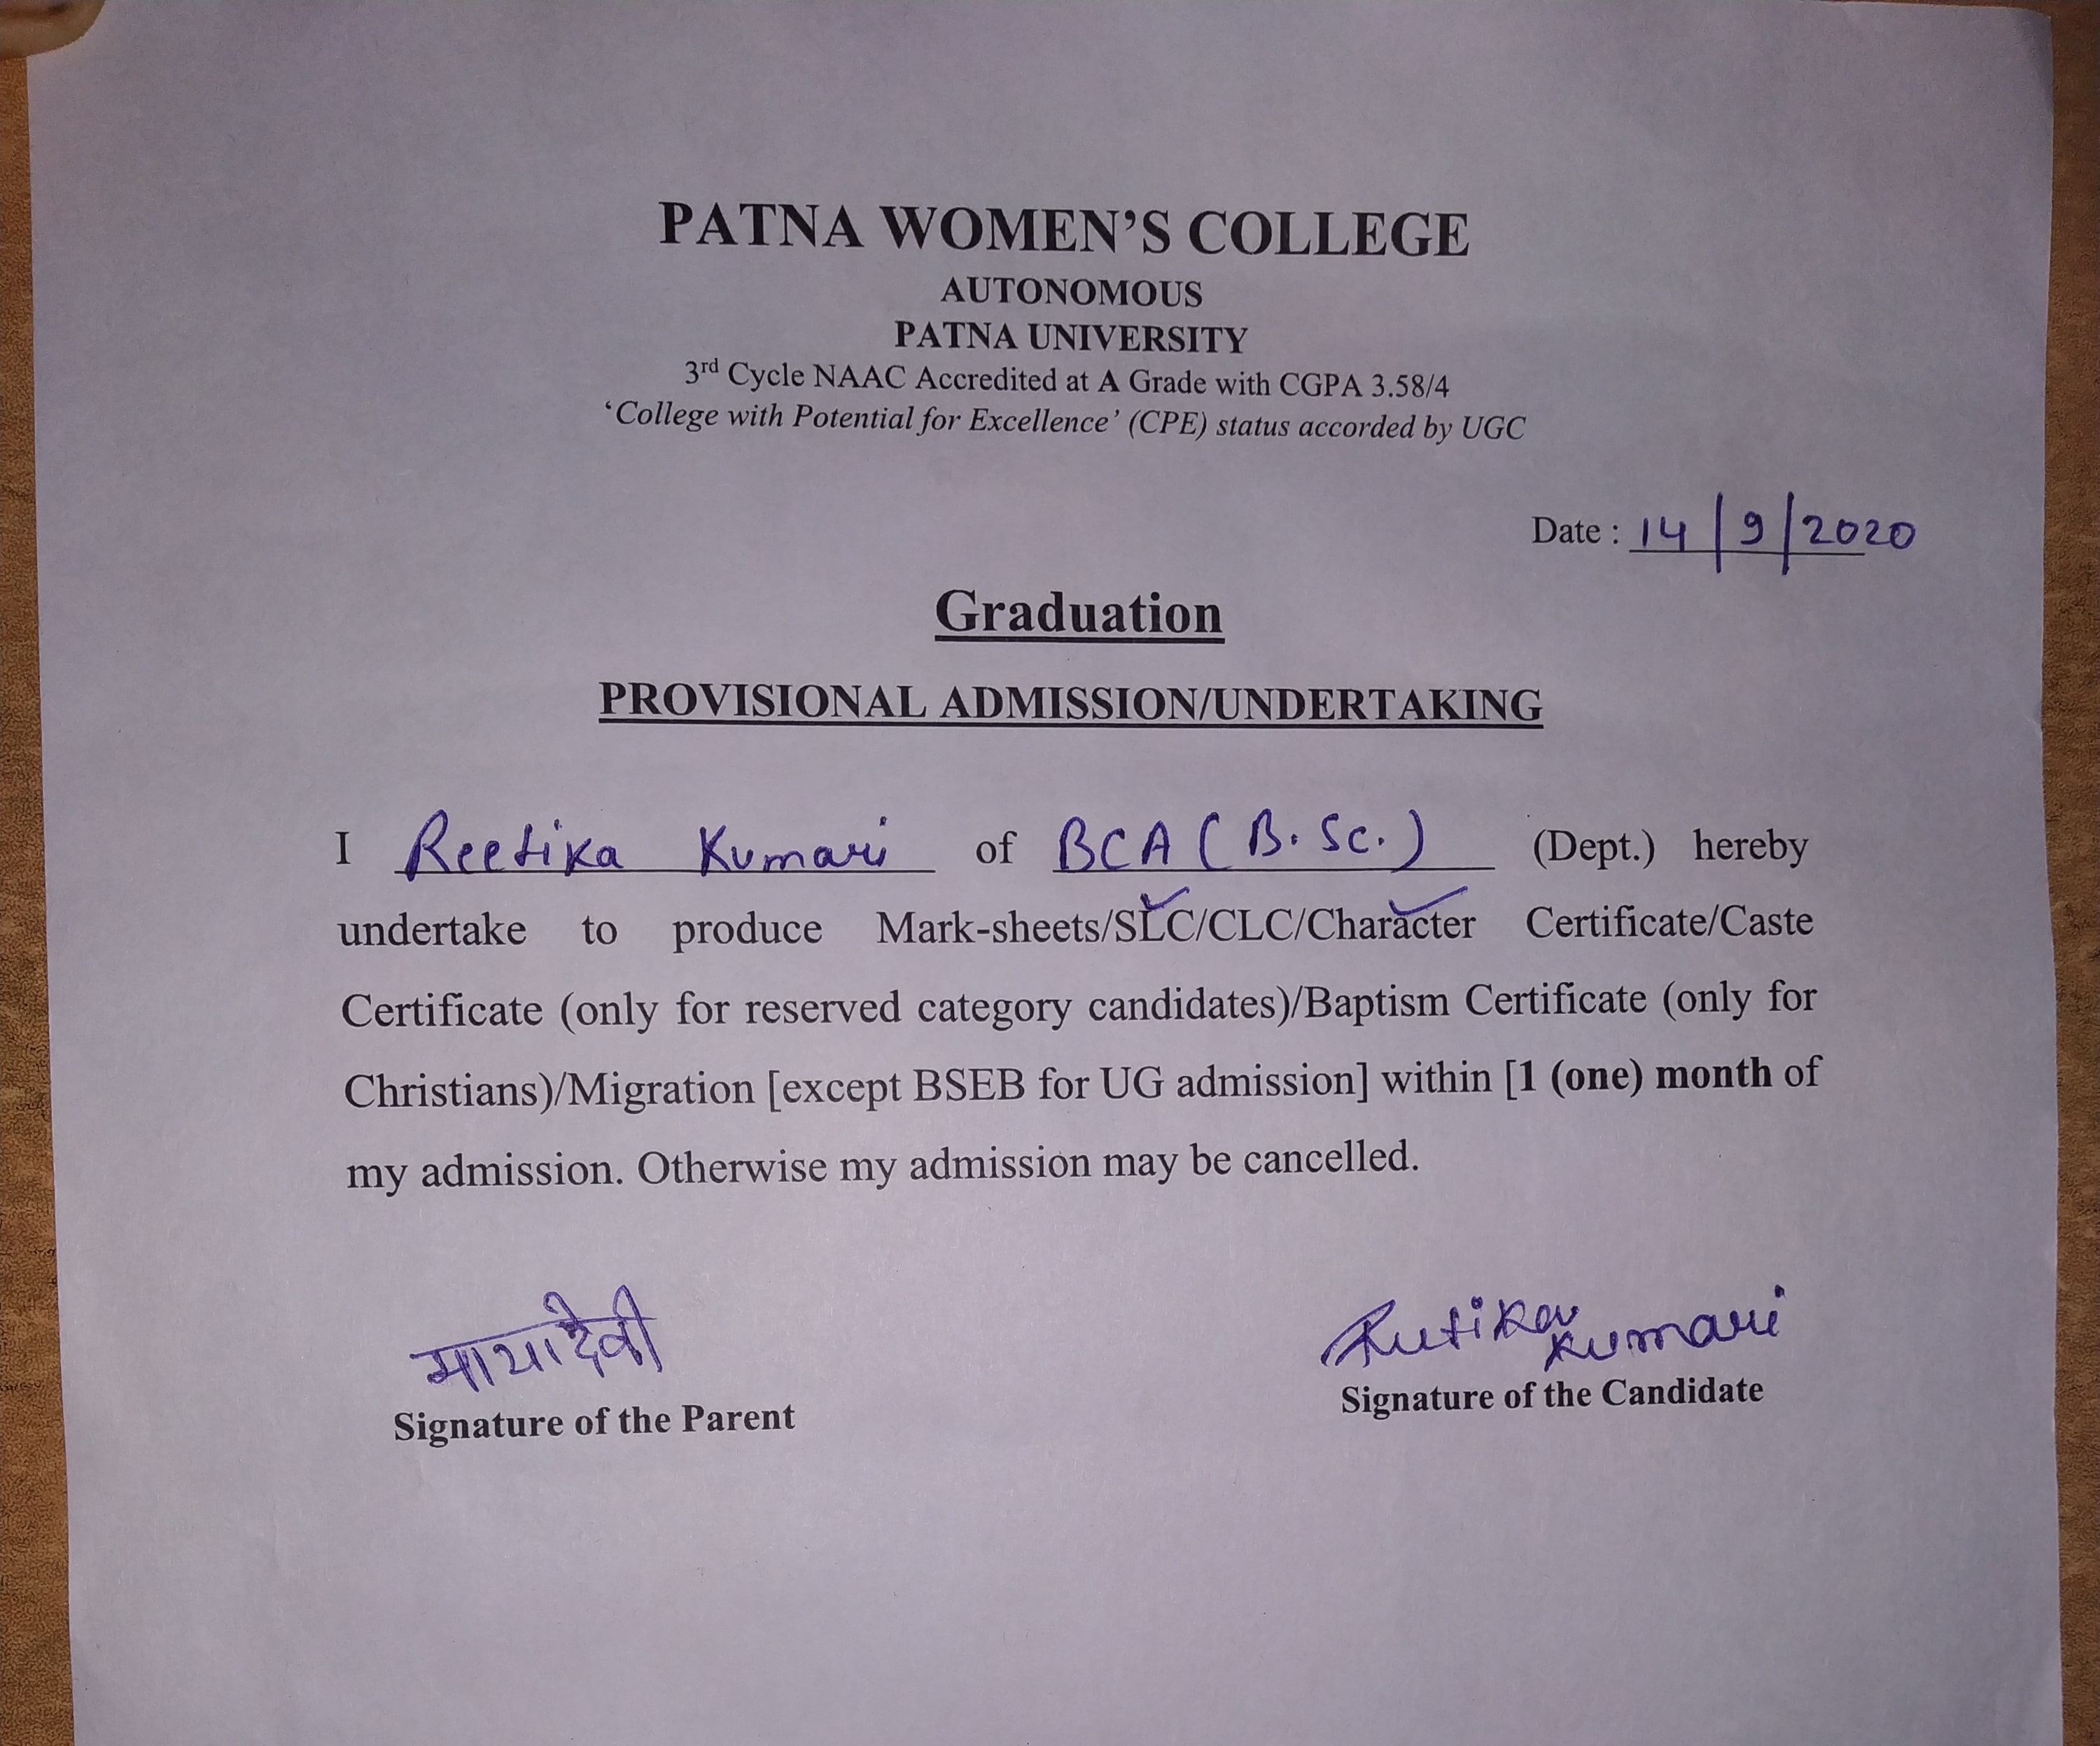 PATNA WOMEN'S COLLEGE
AUTONOMOUS
PATNA UNIVERSITY
3rd Cycle NAAC Accredited at A Grade with CGPA 3.58/4
'College with Potential for Excellence' (CPE) status accorded by UGC
Date : 14/9/2020
Graduation
PROVISIONAL ADMISSION/UNDERTAKING
I Reetika Kumari of BCA (B.Sc.) (Dept.) hereby
undertake to produce Mark-sheets/SLC/CLC/Character Certificate/Caste
Certificate (only for reserved category candidates)/Baptism Certificate (only for
Christians)/Migration [except BSEB for UG admission] within [1 (one) month of
my admission. Otherwise my admission may be cancelled.
माया देवी
Reetika Kumari
Signature of the Parent
Signature of the Candidate